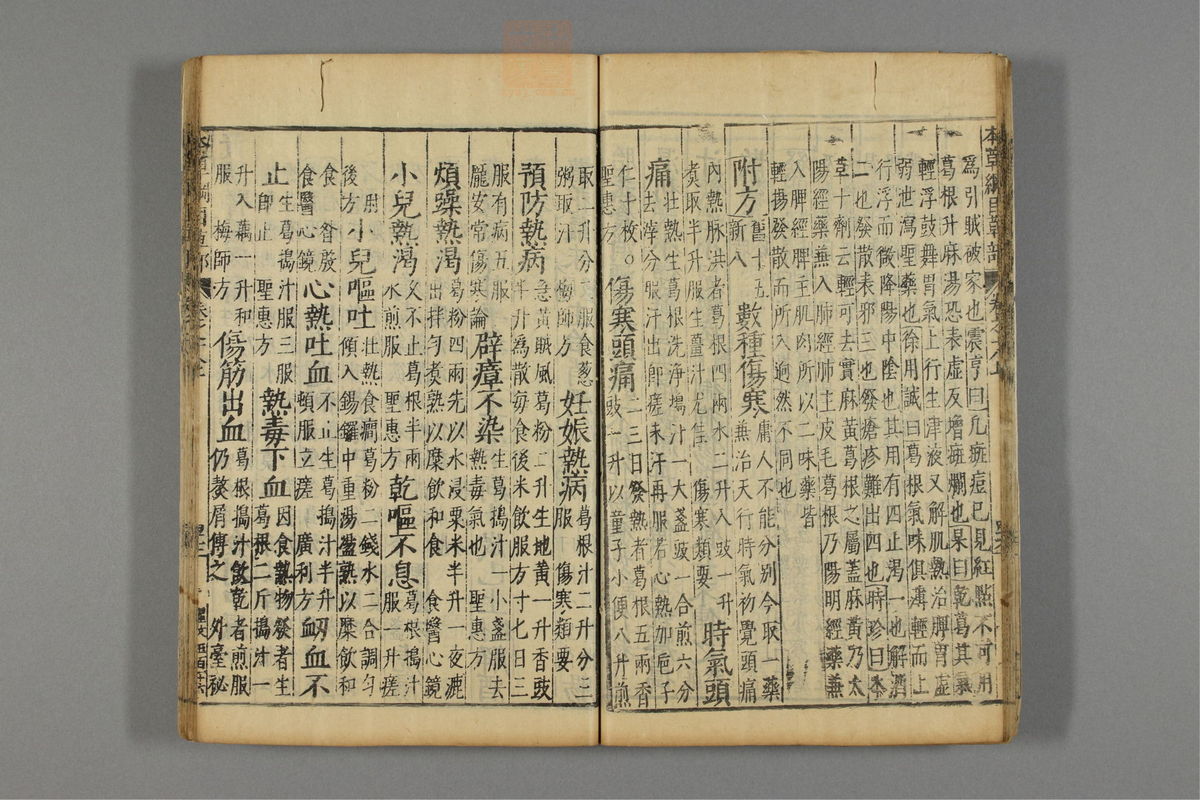 本草綱目草部 卷之十八上
爲引賊破家也震亨曰凡斑痘已見紅點不可用
葛根升麻湯恐表虛反增斑爛也杲曰乾葛其氣
輕浮鼓舞胃氣上行生津液又解肌熱治脾胃虛
弱泄瀉聖藥也徐用誠曰葛根氣味俱薄輕而上
行浮而微降陽中陰也其用有四止渴一也解酒
二也發散表邪三也發瘡疹難出四也時珍曰本
草十劑云輕可去實麻黃葛根之屬蓋麻黃乃太
陽經藥兼入肺經肺主皮毛葛根乃陽明經藥兼
入脾經脾主肌肉所以二味藥皆
輕揚發散而所入迥然不同也
附方 舊十五 新八 數種傷寒 庸人不能分别今取一藥 兼治天行時氣初覺頭痛
內熱脉洪者葛根四兩水二升入豉一升 煑取半升服生薑汁尤佳 傷寒類要 時氣頭
痛 壯熱生葛根洗淨搗汁一大盞豉一合煎六分 去滓分服汗出卽瘥未汗再服若心熱加巵子
仁十枚○ 聖惠方 傷寒頭痛 二三日發熱者葛根五兩香 豉一升以童子小便八升煎
取二升分三服食葱 粥取汗 梅師方 妊娠熱病 葛根汁二升分三 服 傷寒類要
預防熱病 急黃賊風葛粉二升生地黃一升香豉 半升爲散每食後米飲服方寸七日三
服有病五服 龐安常傷寒論 辟瘴不染 生葛搗汁一小盞服去 熱毒氣也 聖惠方
煩躁熱渴 葛粉四兩先以水浸粟米半升一夜漉 出拌勻煮熟以糜飲和食 食醫心鏡
小兒熱渴 久不止葛根半兩 水煎服 聖惠方 乾嘔不息 葛根搗汁 服一升瘥
肘 後方 小兒嘔吐 壯熱食癎葛粉二錢水二合調勻 傾入錫鑼中重湯盪熟以糜飲和
食 昝殷 食醫心鏡 心熱吐血 不止生葛搗汁半升 頓服立瘥 廣利方 衂血不
止 生葛搗汁服三服 卽止 聖惠方 熱毒下血 因食熱物發者生 葛根二斤搗汁一
升入藕一升和 服 梅師方 傷筋出血 葛根搗汁飲乾者煎服 仍熬屑傅之 外臺秘